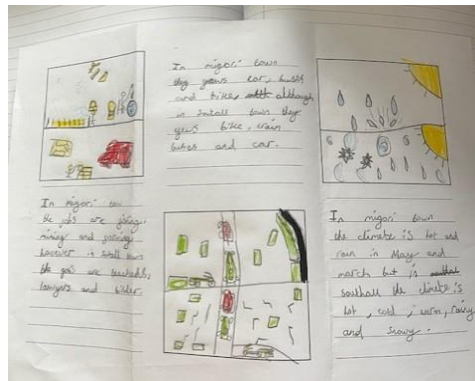 In migori town
they yews car, buses
and bike, although
in Southall town they
yews bike, train
buses and car.
In migori tow
the jobs are fishing,
mining and
however in Southall town
the jobs are teachers,
lawyers and bilder
In migori town
the climate is hot and
rain in May and
march but in
southall the climate is
hot, cold, warm, rainy
and snowy.